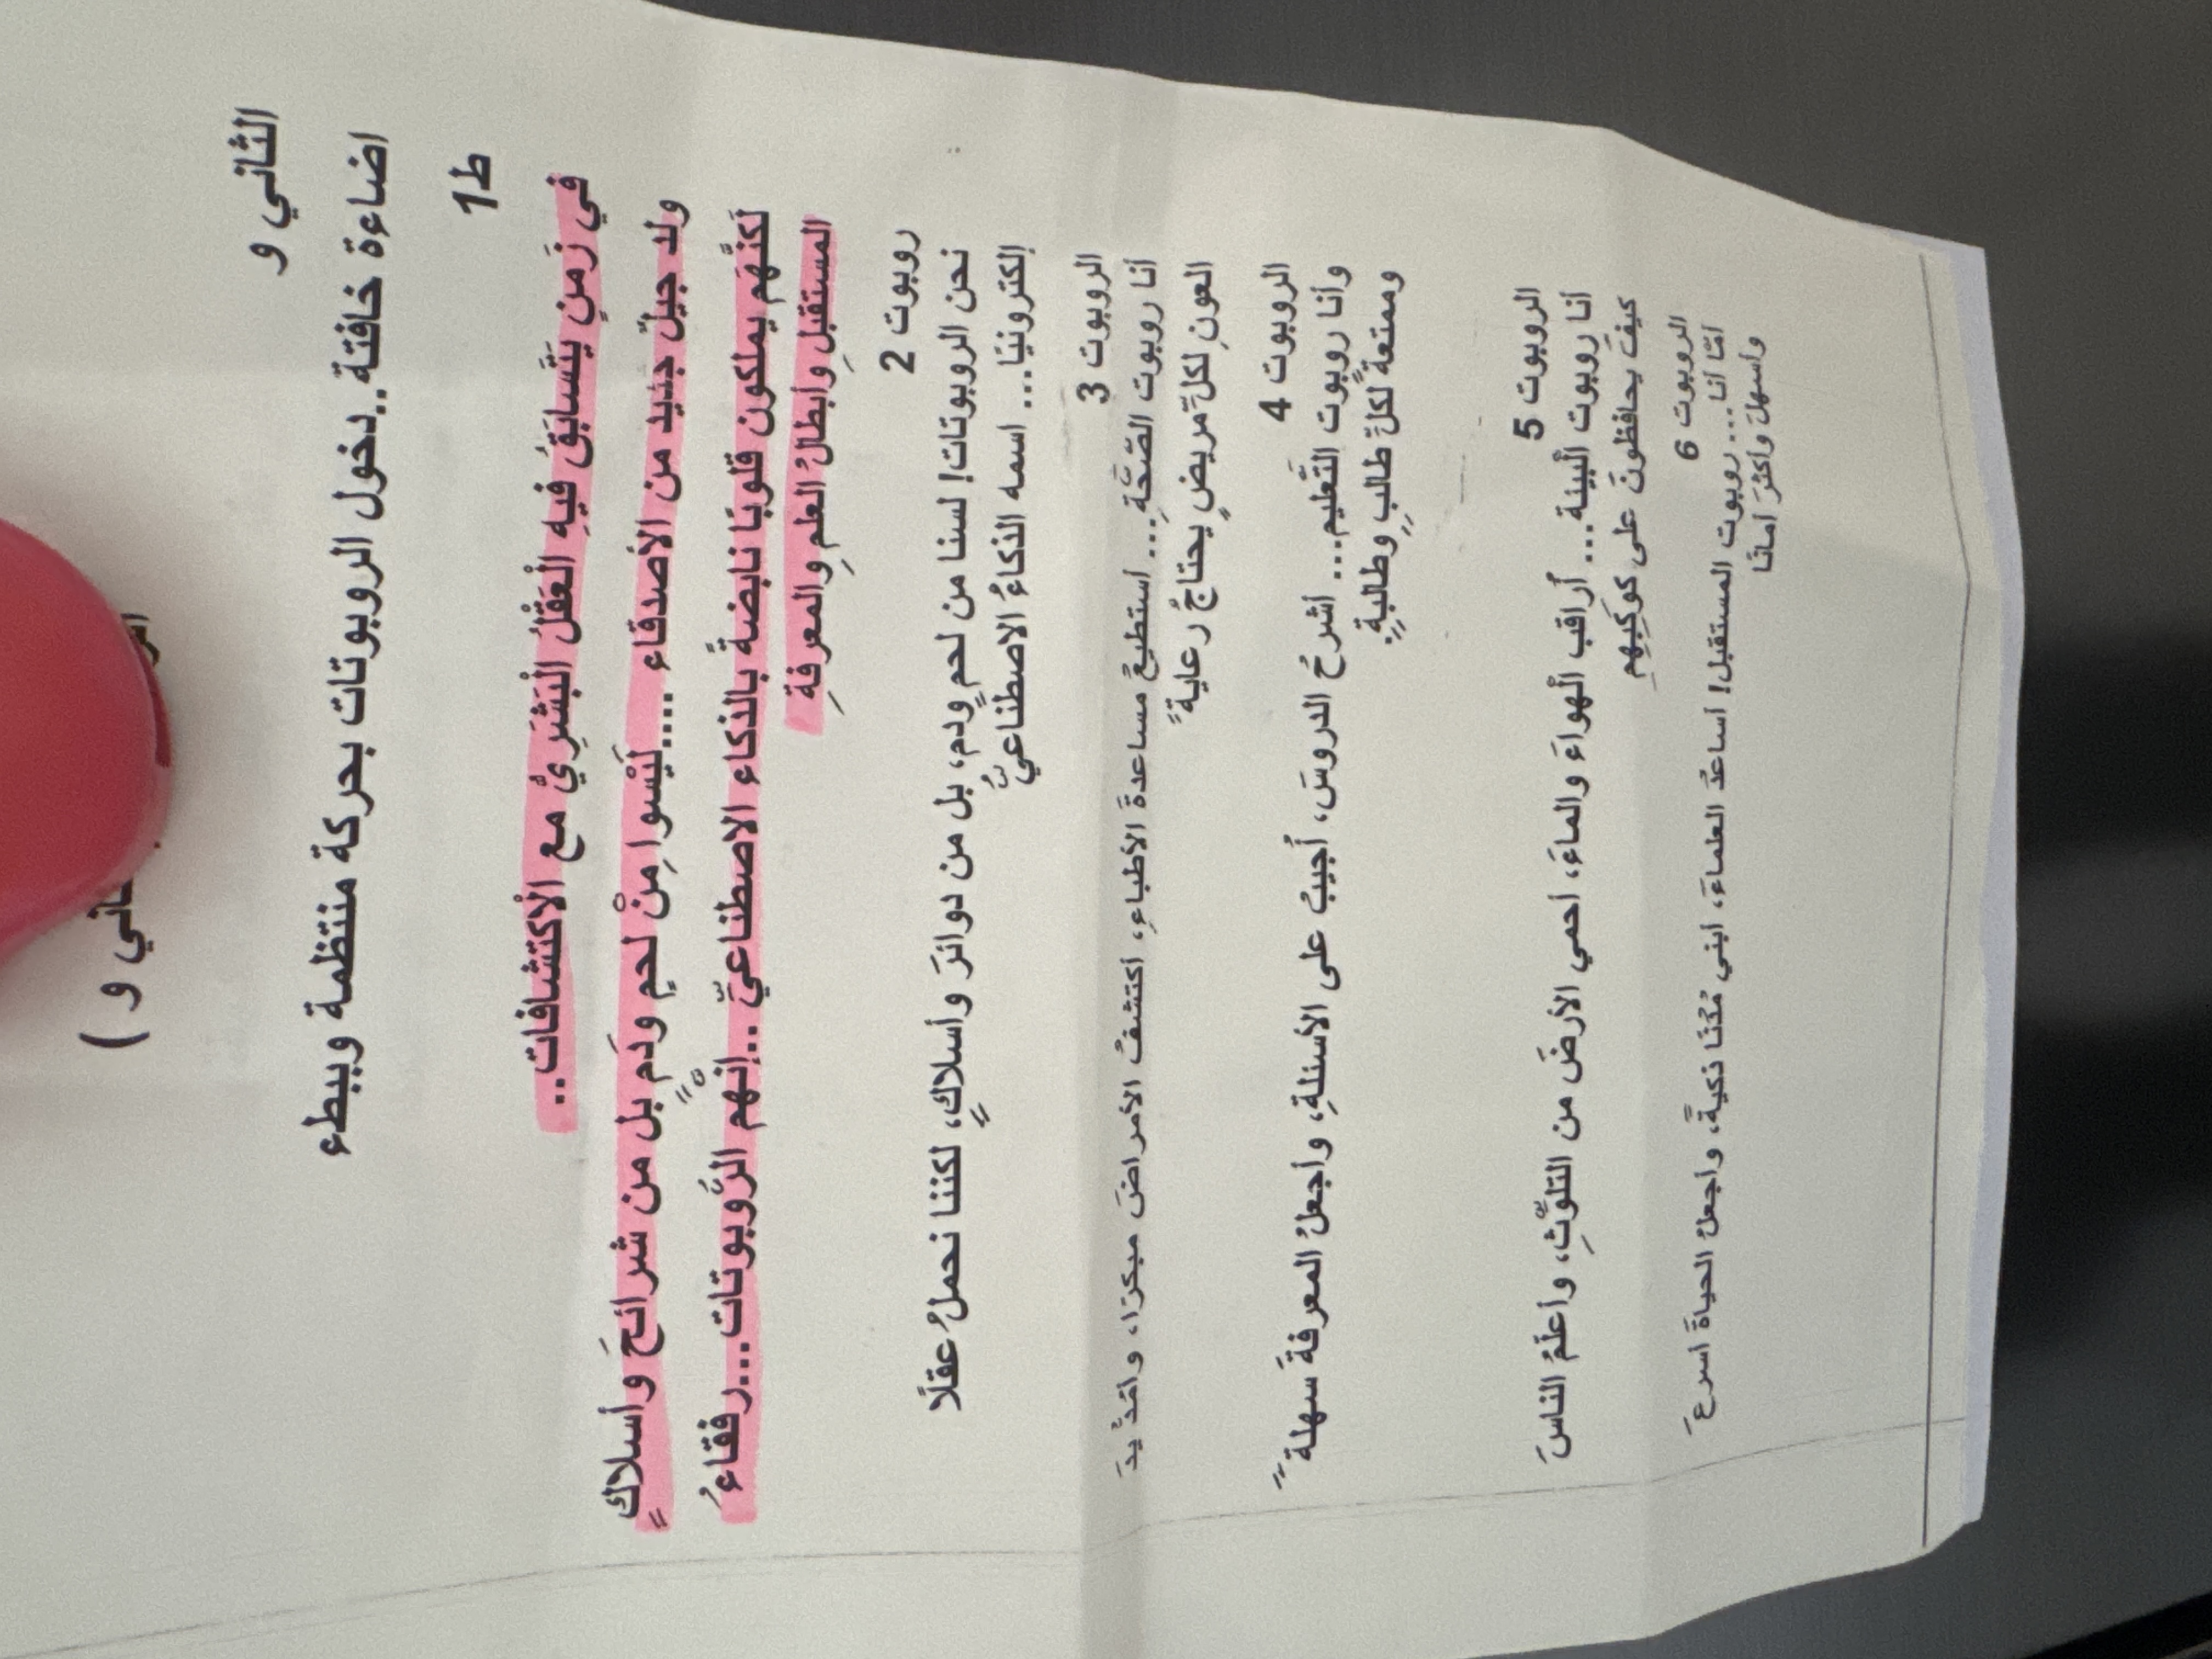 ني و )
الثاني و
اضاءة خافتة..دخول الروبوتات بحركة منتظمة وببطء
ط1
في زَمنٍ يَتَسابَقُ فيهِ الْعَقْلُ الْبَشَرِيُّ مع الْاكتشافات..
ولد جيلٌ جديد من الأصدقاء ....لَيْسوا مِنْ لحمٍ ودَمٍ بل من شرائحَ وأسلاكٍ
لَكنَّهم يملكون قلوبًا نابضةً بالذكاء الاصطناعيِّ ..إنهم الرُّوبوتات...رفقاءُ
المستقبلِ وأبطالُ العلمِ والمعرفةِ
روبوت 2
نحن الروبوتات! لسنا من لحمٍ ودم، بل من دوائرَ وأسلاكٍ، لكننا نحملُ عقلًا
إلكترونيًا... اسمه الذكاءُ الاصطناعيُّ
الروبوت 3
أنا روبوت الصّحّةِ... أستطيعُ مساعدةَ الأطباءِ، أكتشفُ الأمراضَ مبكرًا، وأمدّ يدَ
العونِ لكلّ مريضٍ يحتاجُ رعايةً
الروبوت 4
وأنا روبوت التَّعليم... أشرحُ الدروسَ، أجيبُ على الأسئلةِ، وأجعلُ المعرفةَ سهلةً
وممتعةً لكلّ طالبٍ وطالبةٍ.
الروبوت 5
أنا روبوت الْبيئة... أراقب الْهواءَ والماءَ، أحمي الأرضَ من التلوّثِ، وأعلّمُ الناسَ
كيفَ يحافظونَ على كوكَبِهِمِ
الروبوت 6
أمّا أنا... روبوت المستقبل! أساعدُ العلماءَ، أبني مُدُنًا ذكيةً، وأجعلُ الحياةَ أسرعَ
وأسهلَ وأكثرَ أمانًا